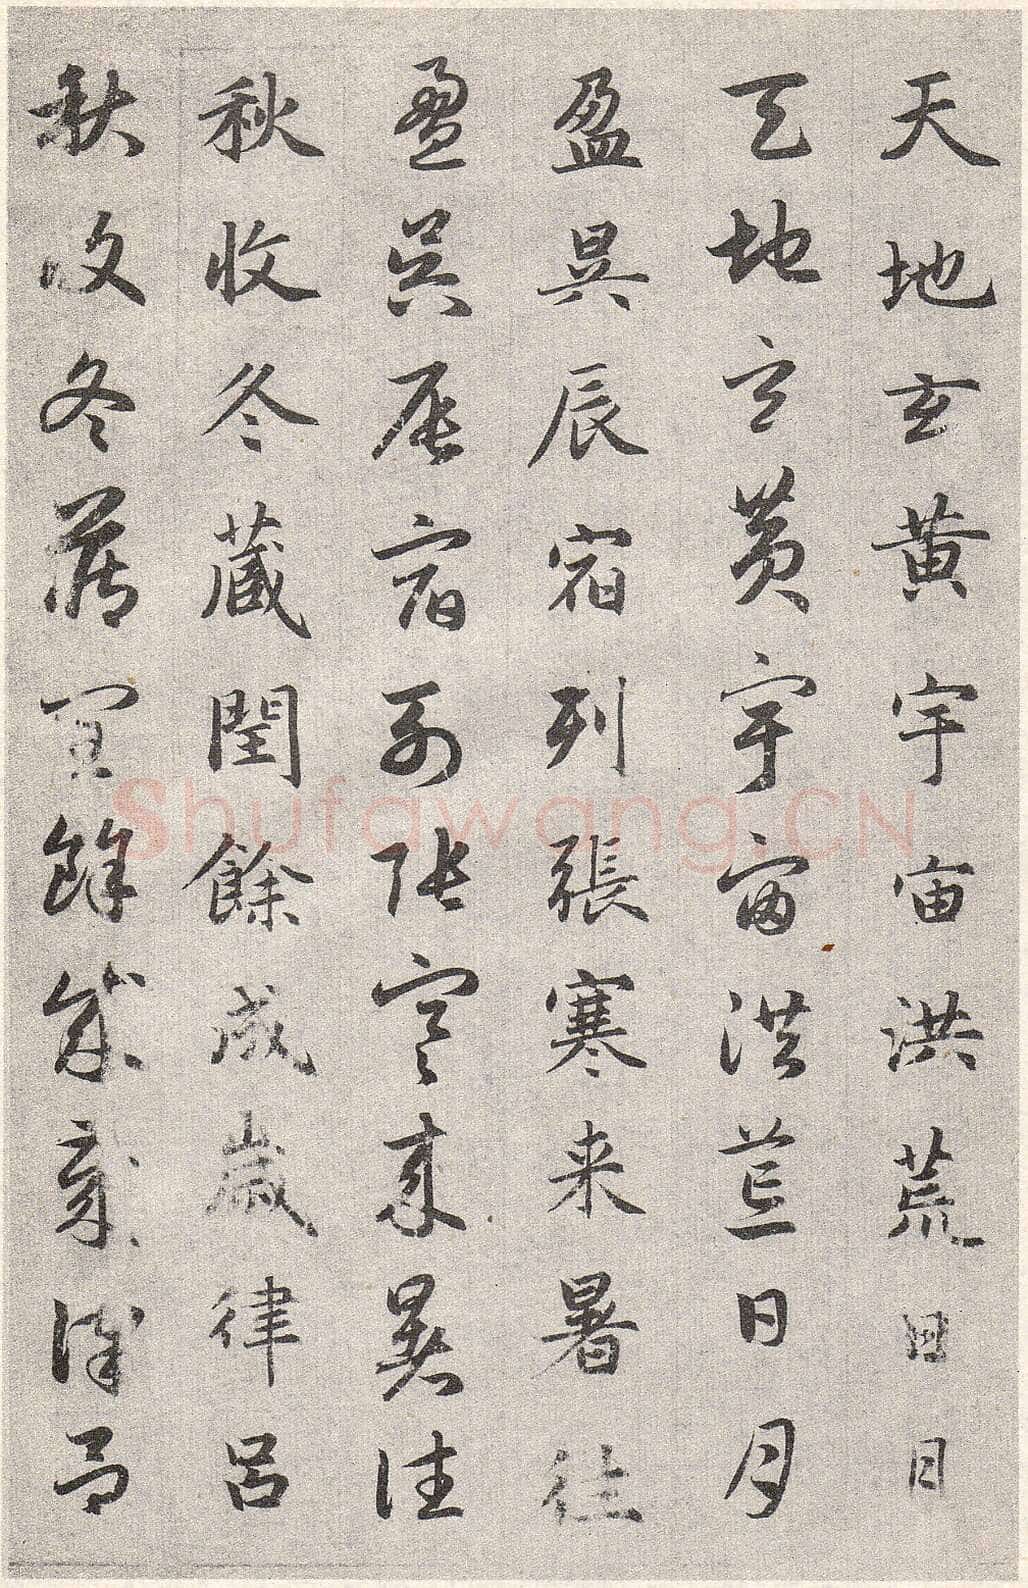 天地玄黄宇宙洪荒日月
天地玄黄宇宙洪荒日月
盈昃辰宿列張寒来暑往
盈昃辰宿列張寒来暑往
秋收冬藏閏餘成歲律呂
秋收冬藏閏餘成歲律呂
Shufawang.CN